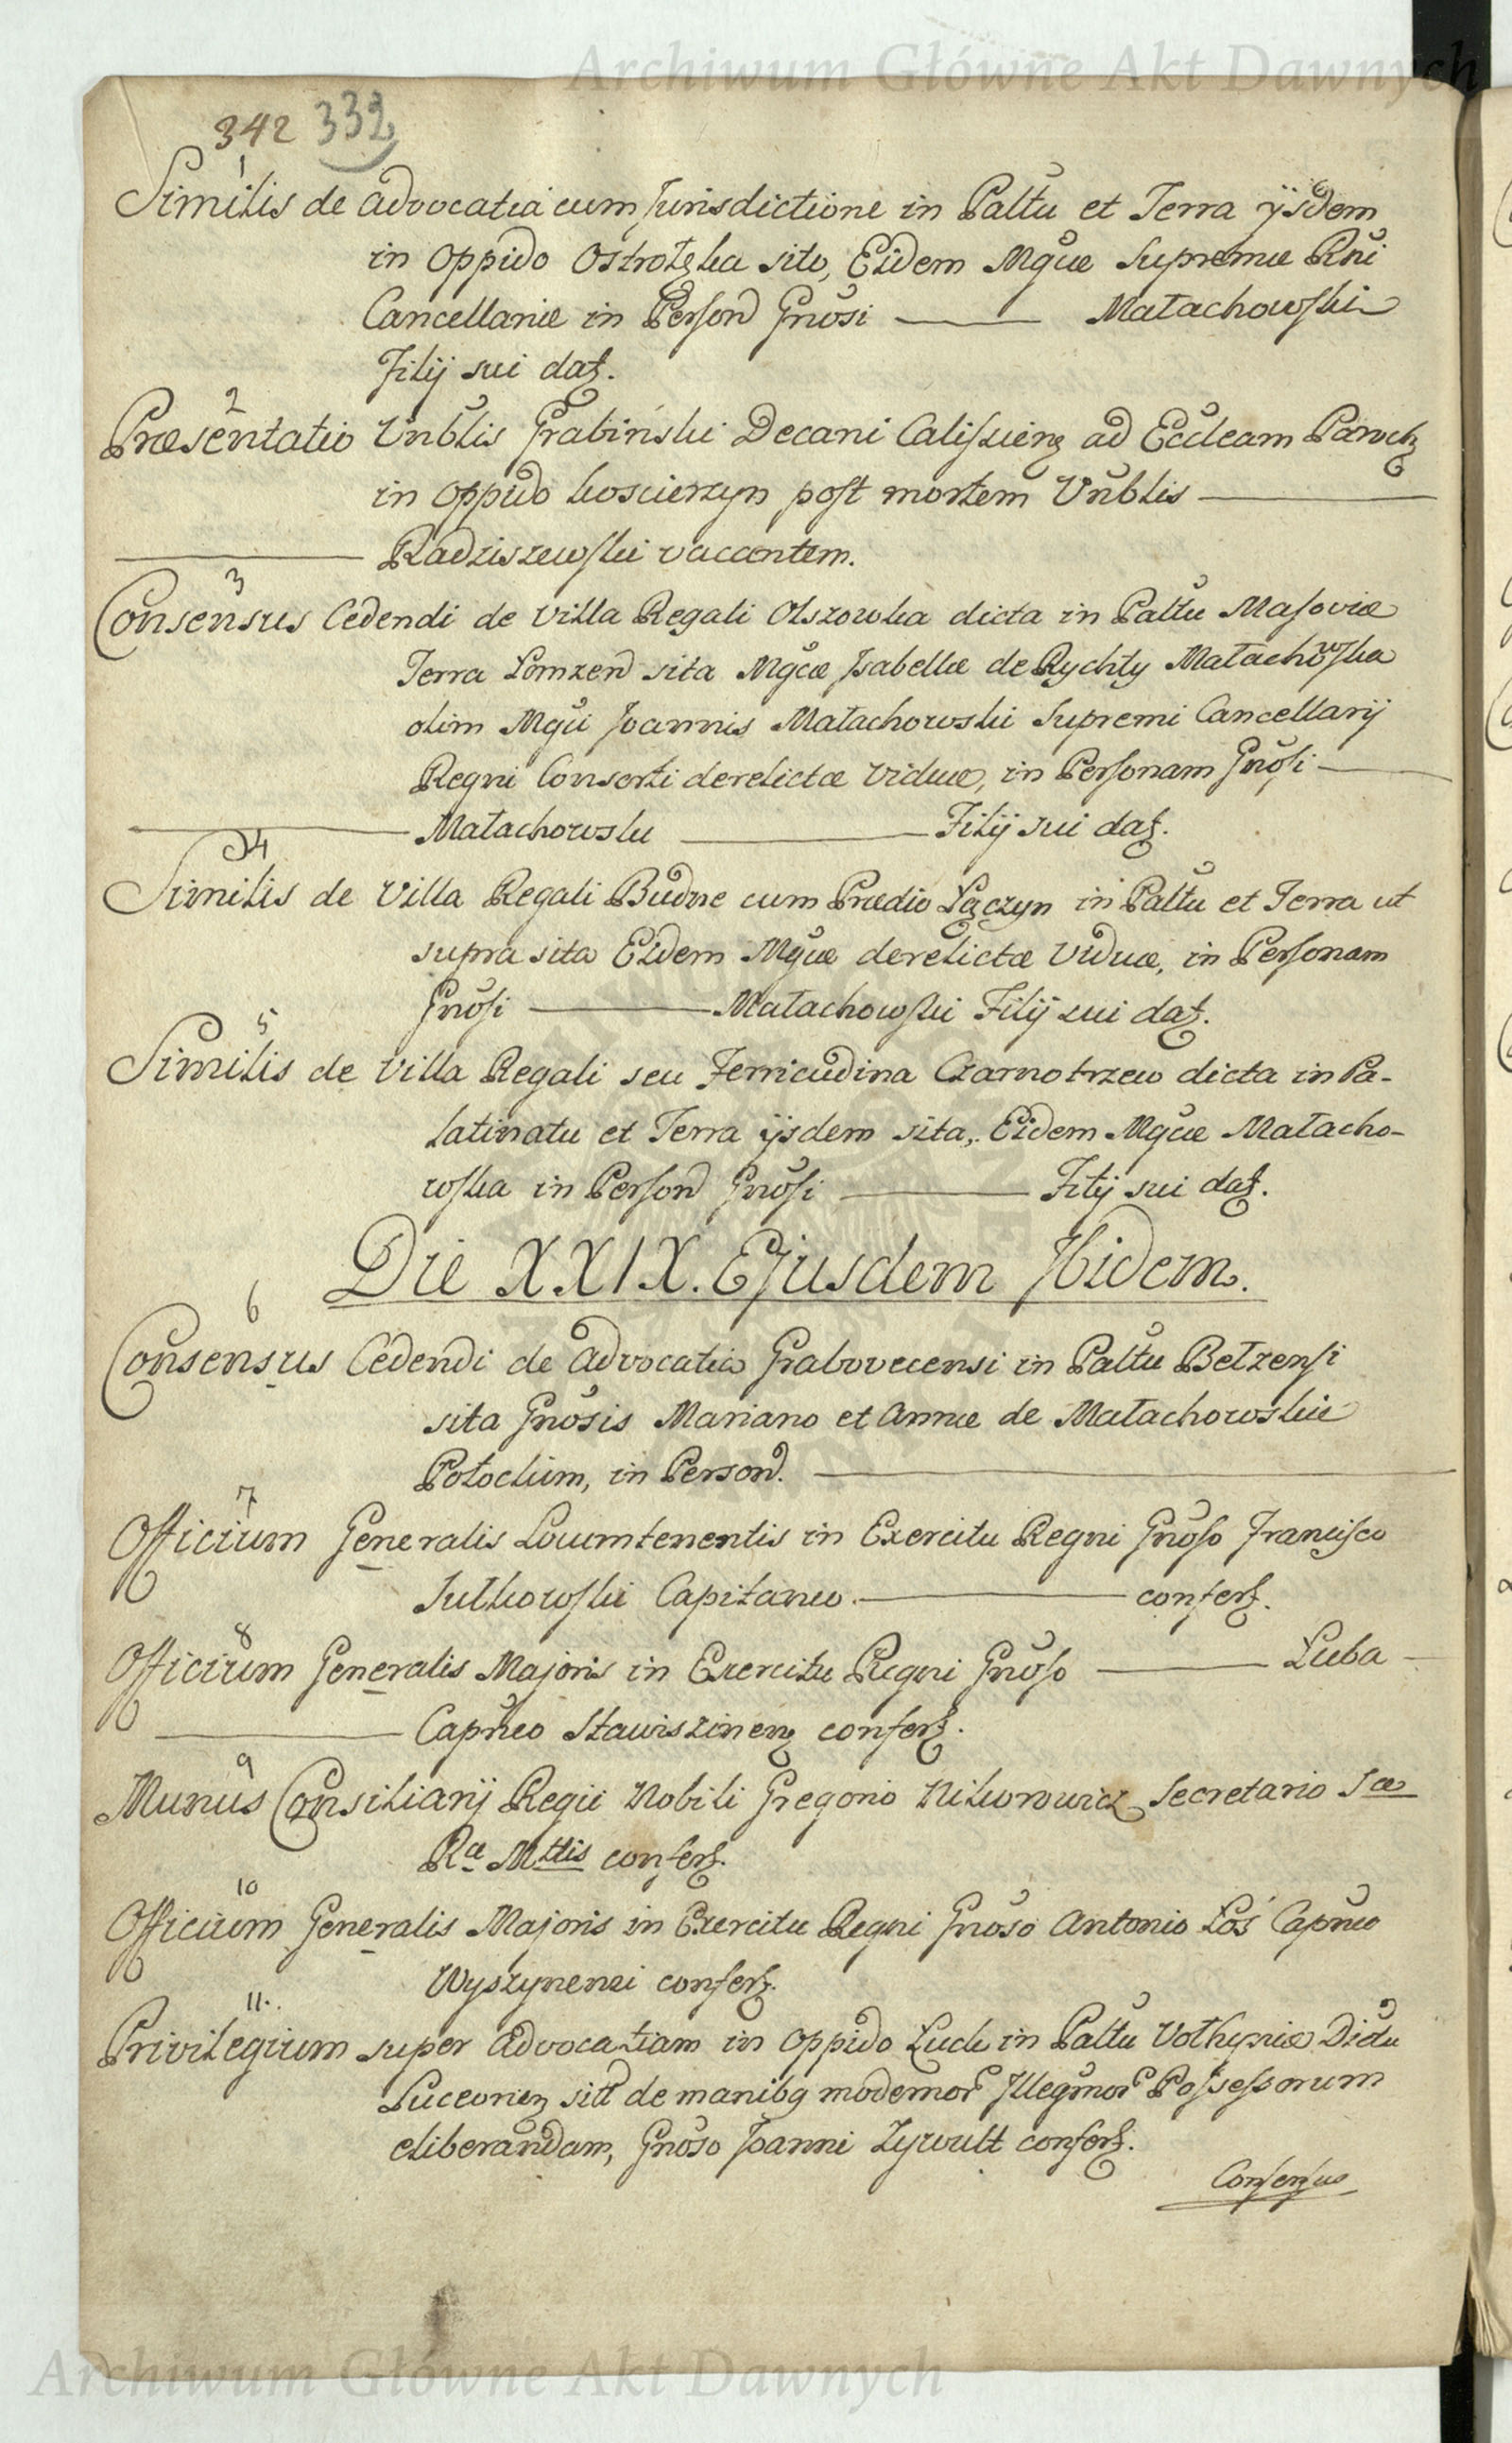 Archiwum Główne Akt Dawnych
342 332
1
Similis de Advocatia cum Jurisdictione in Paltu et Terra ijsdem
in Oppido Ostrołęka sito, Eidem Mgcæ Supremæ Rni
Cancellariæ in Person Gnosi — Małachowski
Filij sui dat.
2
Præsentatio Vnblis Grabiński Decani Calissien ad Eccleam Paroch
in Oppido Koscierzyn post mortem Vnblis —
— Radziszewski vacantem.
3
Consensus Cedendi de Villa Regali Olszowka dicta in Paltu Masoviæ
Terra Lomzen sita Mgcæ Isabellæ de Rychty Małachowska
olim Mgci Joannis Małachowski Supremi Cancellarij
Regni Consorti derelictæ Viduæ, in Personam Gnosi —
— Małachowski — Filij sui dat.
4
Similis de Villa Regali Budne cum Prædio Łączyn in Paltu et Terra ut
supra sita Eidem Mgcæ derelictæ Viduæ, in Personam
Gnosi — Małachowski Filij sui dat.
5
Similis de Villa Regali seu Ferricudina Czarnotrzew dicta in Pa-
latinatu et Terra ijsdem sita, Eidem Mgcæ Małacho-
wska in Person Gnosi — Filij sui dat.
Die XXIX. Ejusdem Ibidem.
6
Consensus Cedendi de Advocatia Grabovecensi in Paltu Belzensi
sita Gnosis Mariano et Annæ de Małachowskie
Potockim, in Person. —
7
Officium Generalis Locumtenentis in Exercitu Regni Gnoso Francisco
Sułkowski Capitaneo. — confert.
8
Officium Generalis Majoris in Exercitu Regni Gnoso — Luba —
— Capneo Stawiszinen confert.
9
Munus Consiliarij Regii Nobili Gregorio Nikorowicz Secretario Sæ
Ræ Mttis confert.
10
Officium Generalis Majoris in Exercitu Regni Gnoso Antonio Łoś Capneo
Wyszynensi confert.
11.
Privilegium super Advocatiam in Oppido Łuck in Paltu Volhyniæ Dictu
Luceorien sitt de manibq modernor Illegmor Possessorum
eliberandam, Gnoso Joanni Zywult confert.
Consensus
Archiwum Główne Akt Dawnych